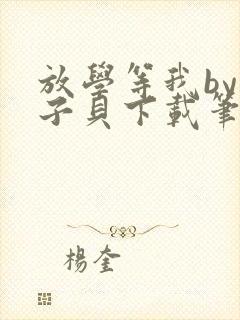 放學等我by
子貝下載筆
楊奎